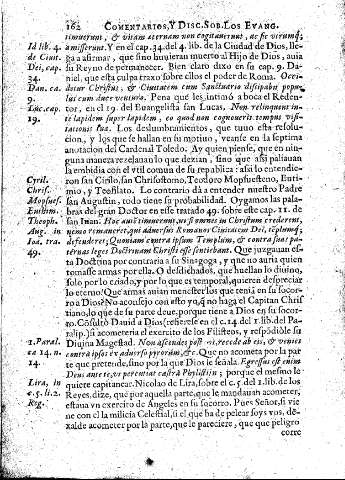 162 COMENTARIOS, Y DISC. SOB. LOS EVANG.
timuerunt, & vitam æternam non cogitauerunt, ac sic vtrumq;
Id lib. 4. amisserunt. Y en el cap. 34. del 4. lib. de la Ciudad de Dios, lle-
de Ciuit. ga a afirmar, que sino huuieran muerto al Hijo de Dios, auia
Dei, cap. su Reyno de permanecer. Bien claro dixo en su cap. 9. Da-
34. niel, que esta culpa traxo sobre ellos el poder de Roma. Occi-
Dan. ca. detur Christus, & Ciuitatem cum Sanctuario dissipabit popu-
9. lus cum duce venturo. Pena que les intimò a boca el Reden-
Luc. cap. tor, en el 19. del Euangelista san Lucas. Non relinquent in
19. te lapidem super lapidem, eo quod non cognoueris tempus visi-
tationis tuæ. Los deslumbramientos, que tuuo esta resolu-
cion, y los que se hallan en su motiuo, veanse en la septima
anotacion del Cardenal Toledo. Ay quien piense, que en nin-
guna manera rezelauan lo que dezian, sino que assi paliauan
la embidia con el vtil comun de su republica: assi lo entendie-
Cyril. ron san Cirilo, san Chrisostomo, Teodoro Mopsuesteno, Euti-
Chris. mio, y Teofilato. Lo contrario dà a entender nuestro Padre
Mopsues. san Augustin, y todo tiene su probabilidad. Oygamos las pala-
Euthim. bras del gran Doctor en este tratado 49. sobre este cap. 11. de
Theoph. san Iuan. Hoc autẽ timuerunt, ne si omnes in Christum crederent,
Aug. in nemo remaneret, qui aduersus Romanos Ciuitatem Dei, templumq;
Ioa. tra. defenderet; Quoniam contra ipsum Templum, & contra suas pa-
49. ternas leges Doctrinam Christi esse sentiebant. Que juzgauan essa
Doctrina por contraria a su Sinagoga, y que no auria quien
tomasse armas por ella. O desdichados, que huellan lo diuino,
solo por lo criado, y por lo que es temporal, quieren despreciar
lo eterno! Que armas auian menester los que teniã en su socor-
ro a Dios? No aconsejo con esto yo, q̃ no haga el Capitan Chris-
tiano, lo que de su parte deue, porque tiene a Dios en su socor-
ro. Cõsultò Dauid a Dios (refierese en el c. 14. del 1. lib. del Pa-
ralip.) si acometeria el exercito de los Filisteos, y respõdiòle su
1. Paral. Diuina Magestad. Non ascendas post eos, recede ab eis, & venies
ca 14. n. contra ipsos ex aduerso pyrorum, &c. Que no acometa por la par
14. te que pretende, sino por la que Dios le señala. Egressus est enim
Deus ante te, vt percutiat castra Phylistijn; porque el mesmo le
Lira, in quiere capitanear. Nicolao de Lira, sobre el c. 5. del 2. lib. de los
c. 5. li. 2. Reyes, dize, que por aquella parte, que le mandauan acometer,
Reg. estaua vn exercito de Angeles en su socorro. Pues Señor, si vie-
ne con el la milicia Celestial, si el que ha de pelear soys vos, de-
xalde acometer por la parte, que le pareciere, que que peligro
corre